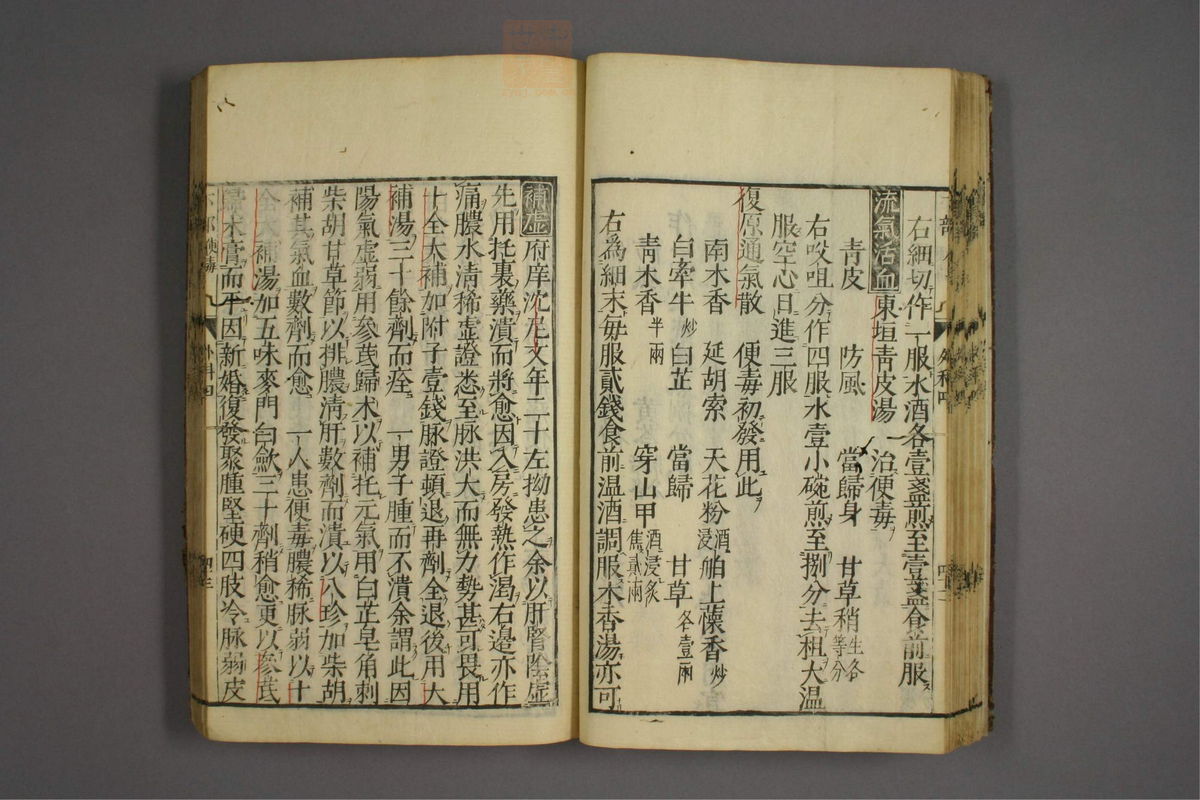 右細切作一服水酒各壹盞煎至壹盞食前服
流氣活血 東垣青皮湯 治便毒
青皮 防風 當歸身 甘草稍生各等分
右㕮咀分作四服水壹小碗煎至捌分去柤大温
服空心日進三服
復原通氣散 便毒初發用此
南木香 延胡索 天花粉酒浸 舶上懷香炒
白牽牛炒 白芷 當歸 甘草各壹兩
青木香半兩 穿山甲酒浸炙焦貳兩
右爲細末每服貳錢食前温酒調服木香湯亦可
補虛 府庠沈尼文年二十左拗患之余以肝腎陰虛
先用托裏藥潰而將愈因入房發熱作渴右邊亦作
痛膿水清稀虛證悉至脉洪大而無力勢甚可畏用
十全大補加附子壹錢脉證頓退再劑全退後用大
補湯三十餘劑而痊 一男子腫而不潰余謂此因
陽氣虛弱用參芪歸术以補托元氣用白芷皂角刺
柴胡甘草節以排膿清肝數劑而潰以八珍加柴胡
補其氣血數劑而愈 一人患便毒膿稀脉弱以十
全大補湯加五味麥門白斂三十劑稍愈更以參芪
膏而平因新婚復發聚腫堅硬四肢冷脉弱皮
外科四
四三